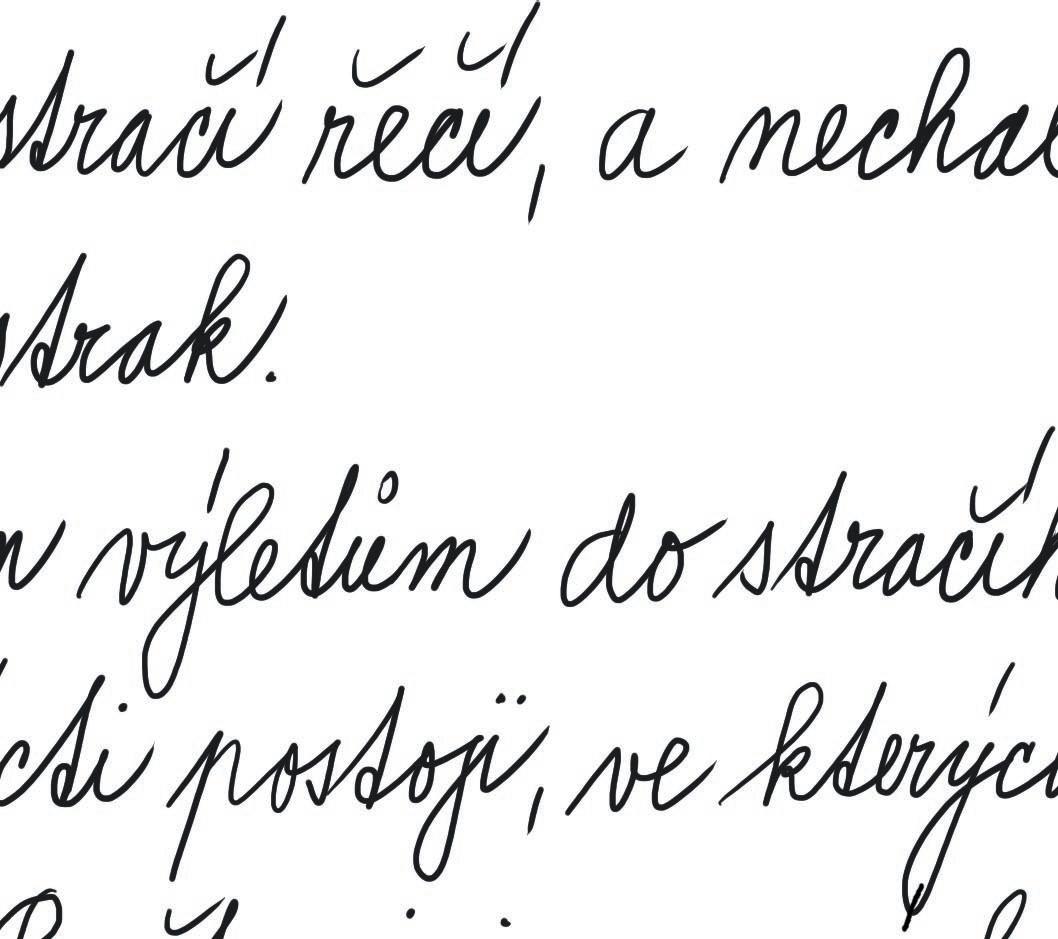 stračí řečí, a nechal
strak.
výletům do stračíh
cti postoji, ve kterých